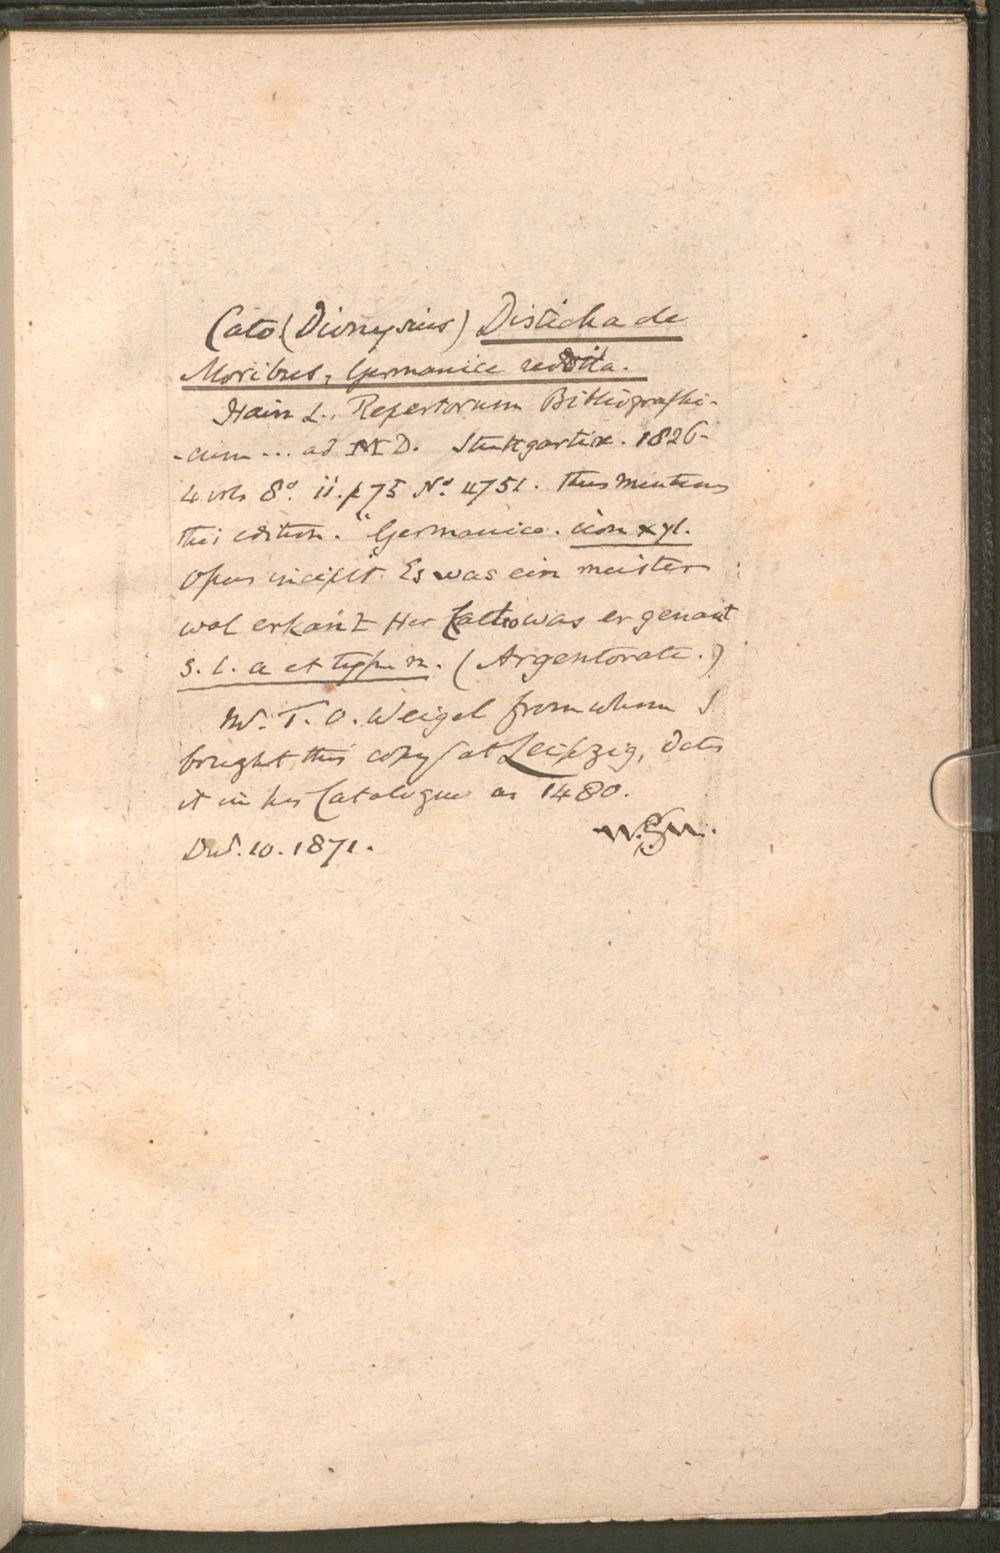 Cato (Dionysius) Disticha de
Moribus, Germanice reddita.
Hain L., Repertorum Bibliographi-
-cum ... ad MD. Stuttgartiæ. 1826-
4 vols 8º. ii. p 75 Nº 4751. thus mentions
this edition. "Germanice. con xyl.
Opus incipit Es was ein meister
wol erkant Her Catho was er genant
S. l. a et typ. n. (Argentorate.)
Mr. T. O. Weigel from whom I
bought this copy at Leipzig, dates
it in his Catalogue as 1480.
Decr. 10. 1871. W.S.M.